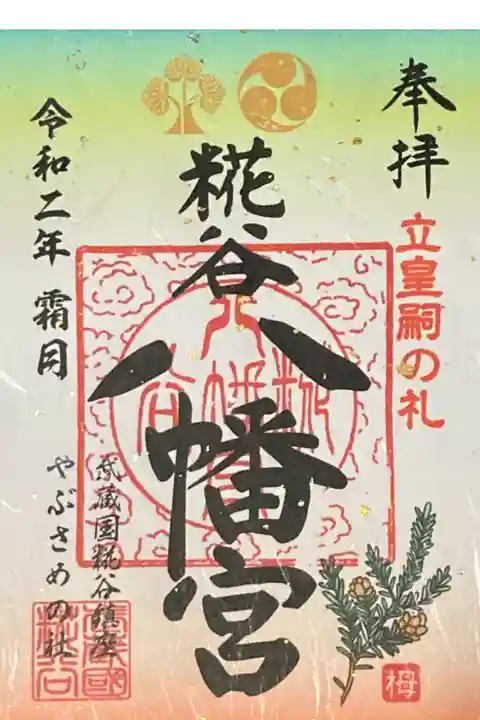 奉拝
立皇嗣の礼
糀谷
八幡宮
八幡
糀谷
令和二年 霜月
武蔵国糀谷鎮座
やぶさめの社
栂